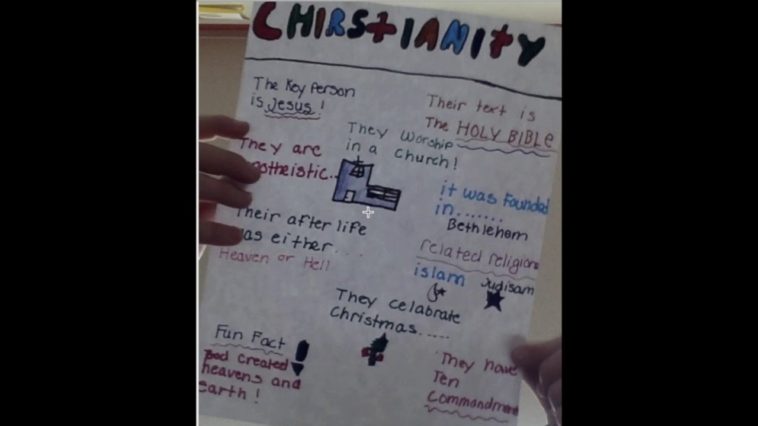 CHIRSTIANITY
The Key Person
is Jesus!
Their text is
The HOLY BIBLE
They worship
in a church!
They are
it was Founded
in.......
Bethlehem
Their after life
was either...
Heaven or Hell
related religions
islam Judisam
They celabrate
Christmas.....
Fun Fact
God created
heavens and
earth!
They have
Ten
Commandment